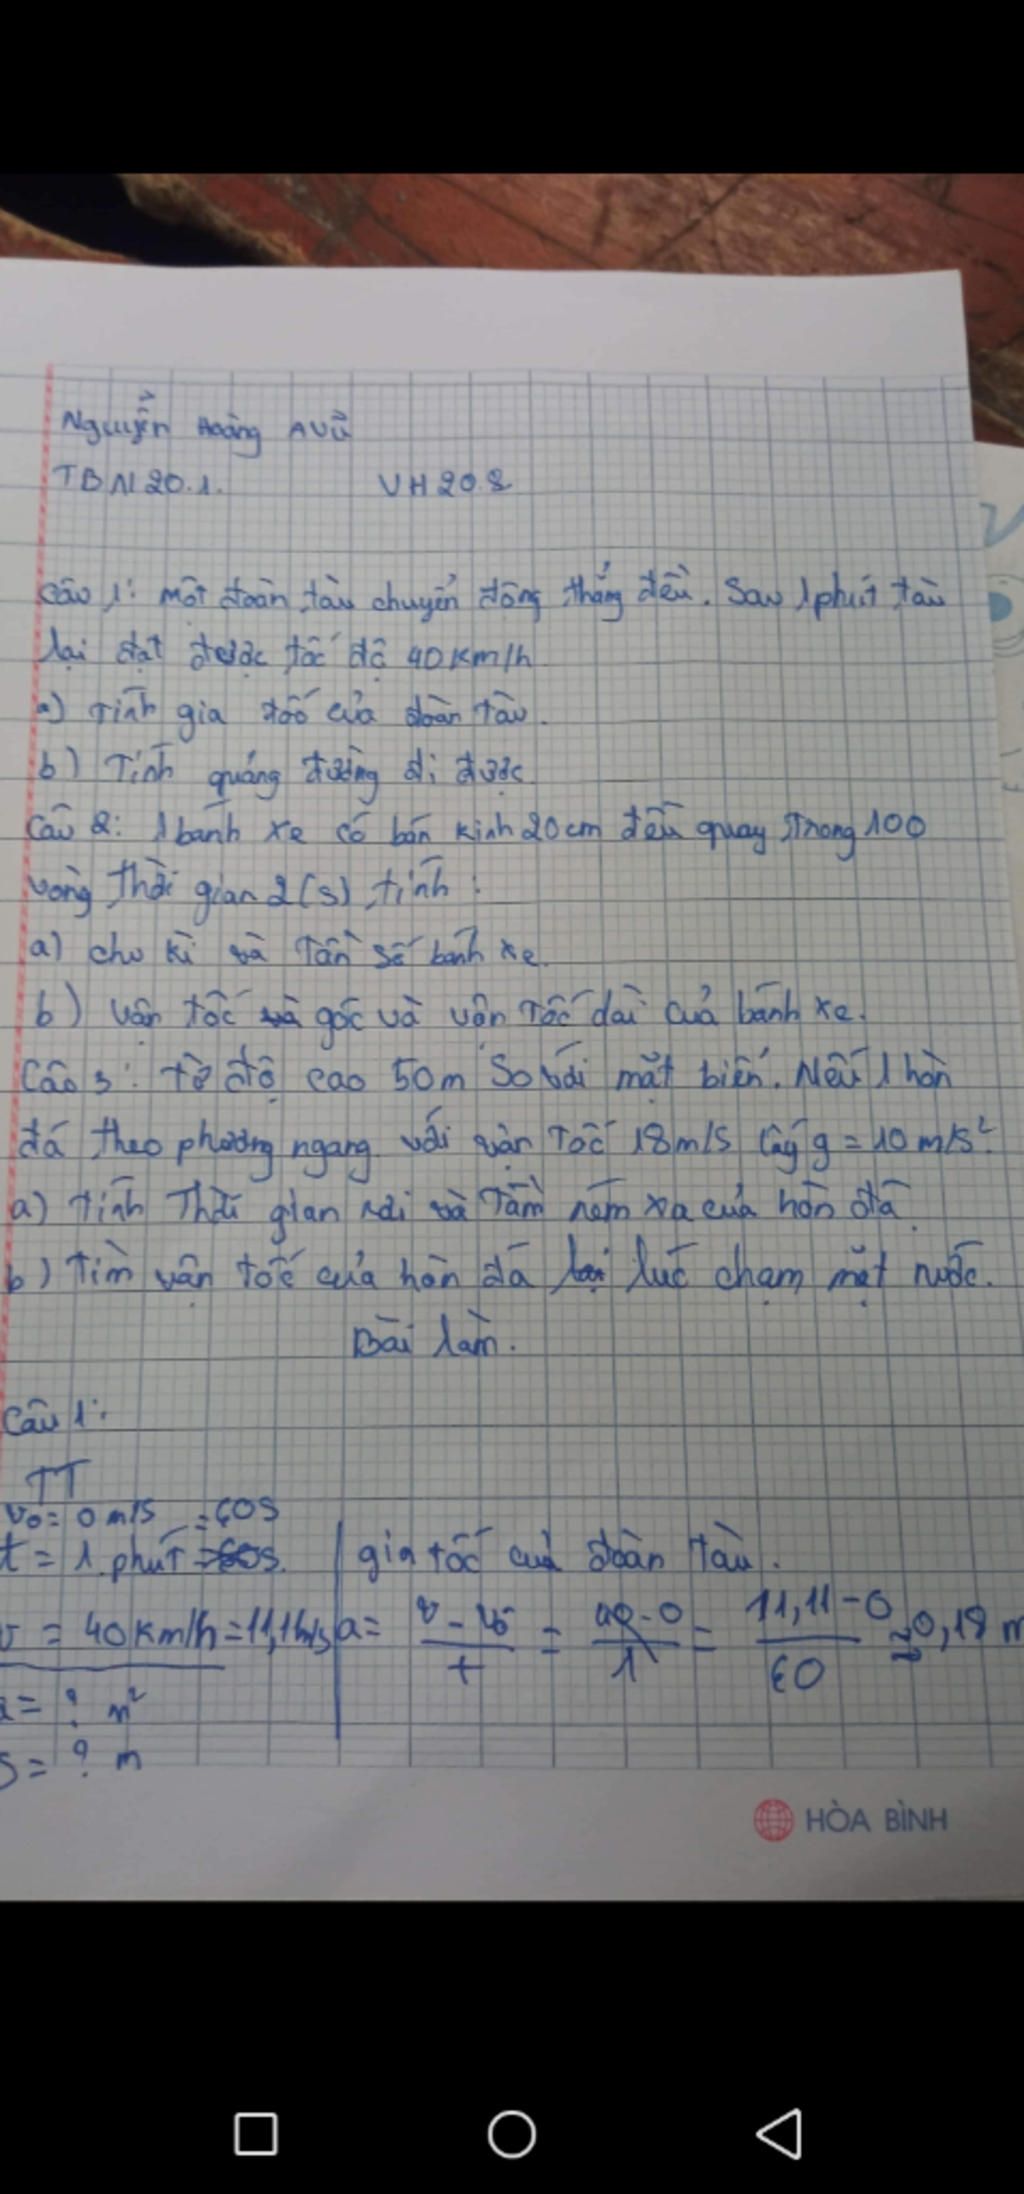 Nguyễn Hoàng
TBN 20.1. VH20.2
Câu 1: một đoàn tàu chuyển động thẳng đều. Sau 1 phút tàu
lại đạt được tốc độ 40km/h
a) Tính gia tốc của đoàn tàu.
b) Tính quãng đường đi được
Câu 2: 1 bánh xe có bán kính 20cm đều quay trong 100
vòng thời gian 2(s) tính:
a) chu kì và tần số bánh xe.
b) vận tốc góc và vận tốc dài của bánh xe.
Câu 3: Từ độ cao 50m So với mặt biển. Nếu 1 hòn
đá theo phương ngang với vận tốc 18m/s lấy g = 10m/s²
a) tính thời gian rơi và tầm ném xa của hòn đá.
b) Tìm vận tốc của hòn đá lúc chạm mặt nước.
Bài làm.
Câu 1:
TT
v₀ = 0 m/s = 60s
t = 1 phút gia tốc của đoàn tàu.
v = 40km/h = 11,11m/s a = v - v₀ / t = 40 - 0 / 1 = 11,11 - 0 / 60 ≈ 0,18 m
a = ? m²
s = ? m
HÒA BÌNH